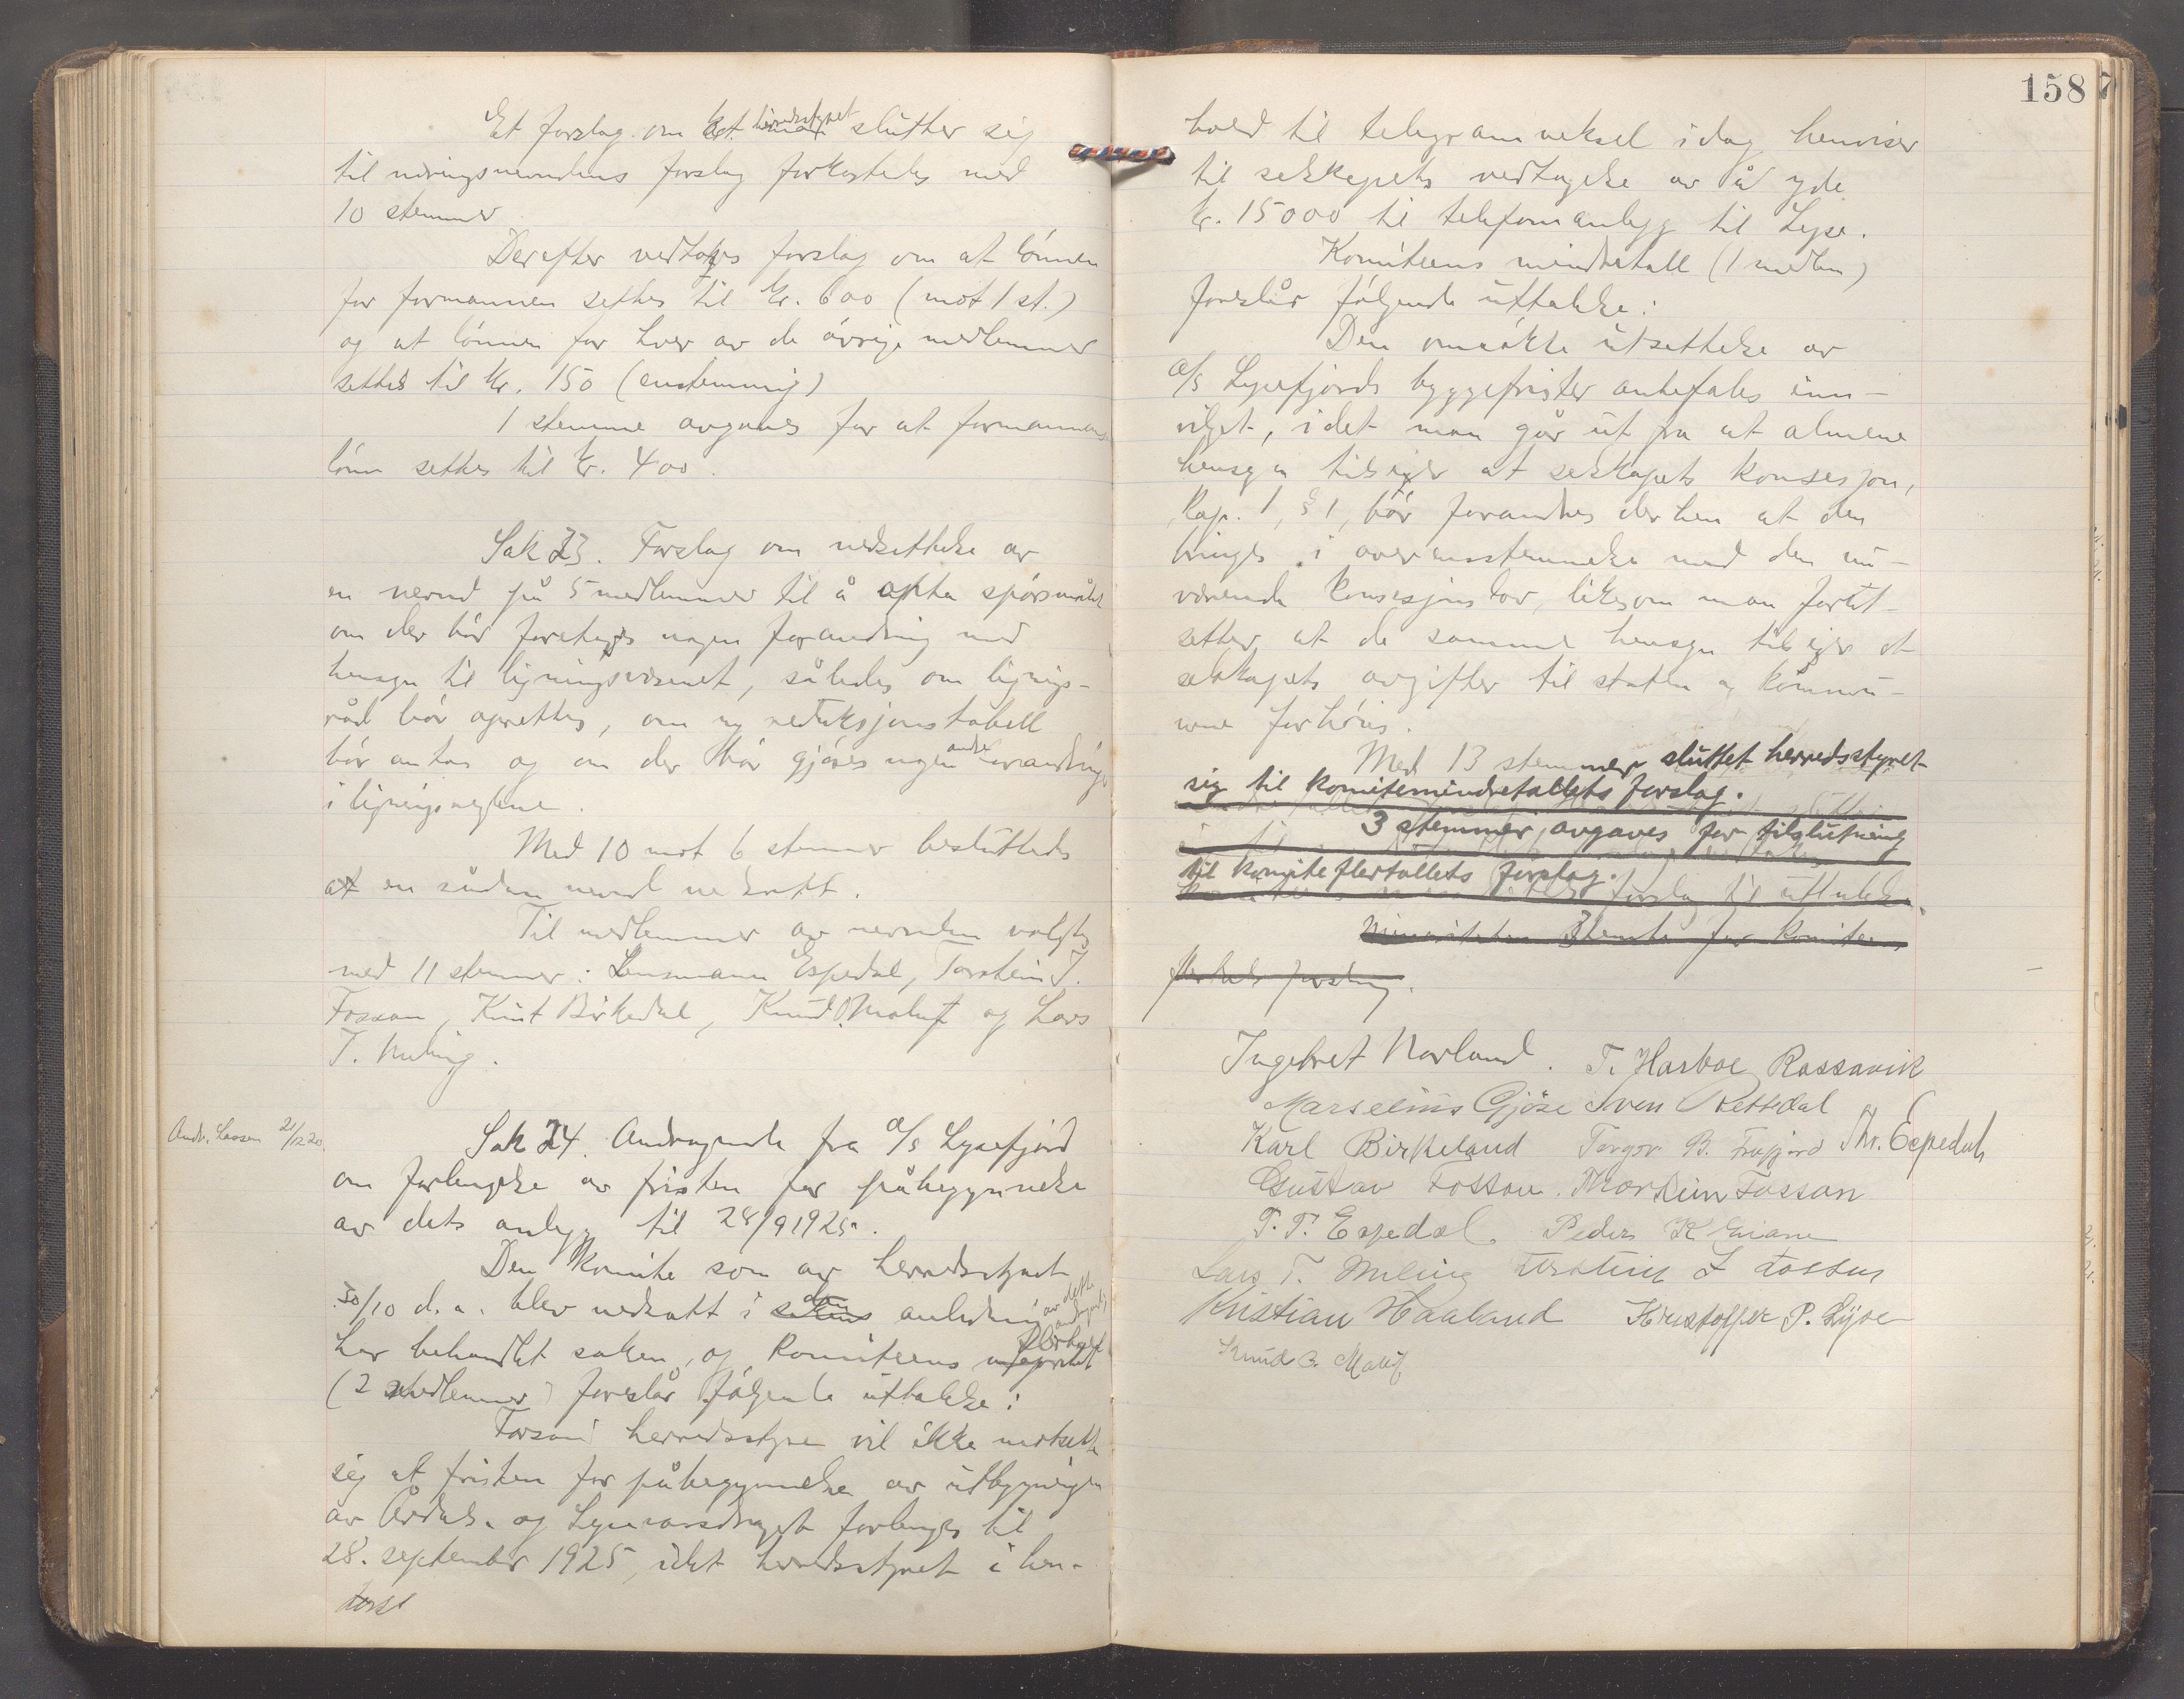 Et forslag om at herredsstyret slutter sig
til nevndens forslag forkastedes med
10 stemmer
Derefter vedtoges forslag om at lönnen
for formannen settes til kr. 600 (mot 1 st.)
og at lönnen for hver av de övrige medlemmer
settes til kr. 150 (enstemmig)
1 stemme avgaves for at formannens
lönn settes til kr. 400.
Sak 23. Forslag om nedsettelse av
en nevnd på 5 medlemmer til å opta spörsmålet
om der bör foretages nogen forandring med
hensyn til ligningsvesenet, således om lignings-
råd bör oprettes, om ny reduksjonstabell
bör antas og om der bör gjöres nogen andre forandringer
i ligningsreglene.
Med 10 mot 6 stemmer besluttedes
at en sådan nevnd nedsatt.
Til medlemmer av nevnden valgtes
med 11 stemmer: Lensmann Espedal, Torstein T.
Fossan, Knut Birkedal, Knud B. Maluf og Lars
T. Meling.
Andr. Lassen 21/12 20.
Sak 24. Andragende fra A/S Lysefjord
om forlengelse av fristen for påbegynnelse
av dets anlegg til 28/9 1925.
Den komite som av herredsstyret
30/10 d. a. blev nedsatt i den anledning av dette andragende,
har behandlet saken, og komiteens flertall
(2 medlemmer) foreslår følgende uttalelse:
Forsand herredsstyre vil ikke motsette
sig at fristen for påbegynnelse av utbygningen
av Årdals- og Lysevassdraget forlenges til
28. september 1925, idet herredsstyret i hen-
hold
158
hold til telegramveksel idag henviser
til selskapets vedtagelse av å yde
kr. 15000 til telefonanlegg til Lyse.
Komiteens mindretall (1 medlem)
foreslår følgende uttalelse:
Den omsökte utsettelse av
A/S Lysefjords byggefrister anbefales inn-
vilget, idet man går ut fra at almene
hensyn tilsiger at selskapets konsesjon,
Kap. 1, § 1, bör forandres derhen at den
bringes i overensstemmelse med den nu-
værende konsesjonslov, likesom man forut-
setter at de samme hensyn tilsiger at
selskapets avgifter til staten og kommu-
nene forhöies.
Med 13 stemmer sluttet herredsstyret
sig til komitemindretallets forslag.
3 stemmer avgaves for tilslutning
til komiteflertallets forslag.
Minoriteten stemte for komiteens
flertals forslag.
Ingebret Norland. T. Hasboe Rossavik
Marselius Gjöse Sven Rettedal
Karl Birkeland Torger B. Frafjord Thr. Espedal
Gustav Fossan. Morten Fossan
T. T. Espedal. Peder K Eriane
Lars T. Meling Torstein T Fossan
Kristian Haaland Kristoffer P. Lyse
Knud B. Maluf